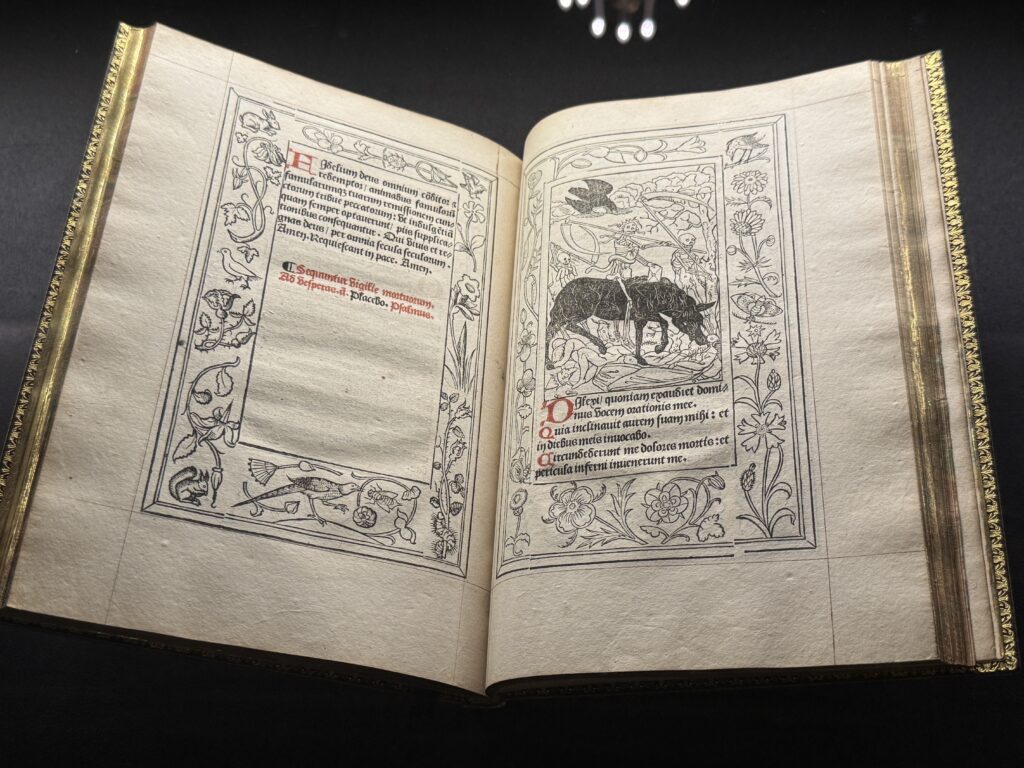 FIdelium deus omnium cōditor &
redemptor/ animabus famulorū
famularumqꝫ tuarum remissionem cun-
ctorum tribue peccatorum: vt indulgētiā
quam semper optauerunt/ piis supplica-
tionibus consequantur. Qui viuis et re-
gnas deus/ per omnia secula seculorum.
Amen. Requiescant in pace. Amen.
¶ Sequuntur vigilie mortuorum.
Ad vesperas. añ. Placebo. Psalmus.
DIlexi/ quoniam exaudiet domi-
nus vocem orationis mee.
Quia inclinauit aurem suam mihi: et
in diebus meis inuocabo.
Circundederunt me dolores mortis: et
pericula inferni inuenerunt me.